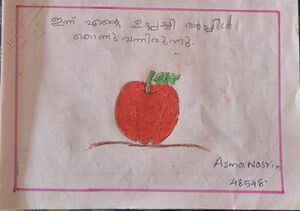 ഇന്ന് എന്റെ ഉപ്പച്ചി ആപ്പിൾ
കൊണ്ടു വന്നിരുന്നു.
Asma Nasrin
48548